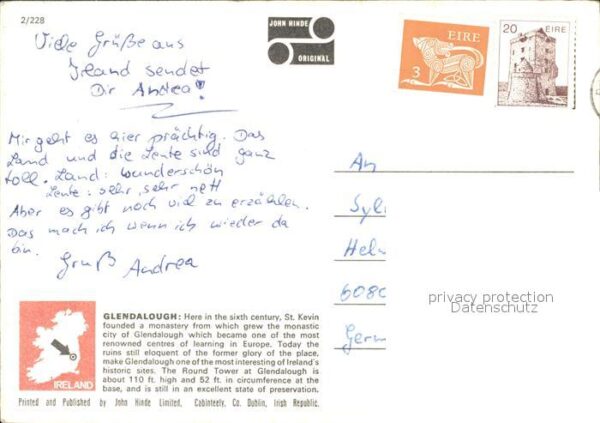 2/228
Viele Grüße aus
Irland sendet
Dir Andrea!
JOHN HINDE
ORIGINAL
3 EIRE
20 EIRE
Mir geht es hier prächtig. Das
Land und die Leute sind ganz
toll. Land: wunderschön
Leute: sehr, sehr nett
Aber es gibt noch viel zu erzählen.
Das mach ich wenn ich wieder da
bin.
Gruß Andrea
An
Syl
Hel
6080
Germ
privacy protection
Datenschutz
IRELAND
GLENDALOUGH: Here in the sixth century, St. Kevin
founded a monastery from which grew the monastic
city of Glendalough which became one of the most
renowned centres of learning in Europe. Today the
ruins still eloquent of the former glory of the place,
make Glendalough one of the most interesting of Ireland's
historic sites. The Round Tower at Glendalough is
about 110 ft. high and 52 ft. in circumference at the
base, and is still in an excellent state of preservation.
Printed and Published by John Hinde Limited, Cabinteely, Co. Dublin, Irish Republic.